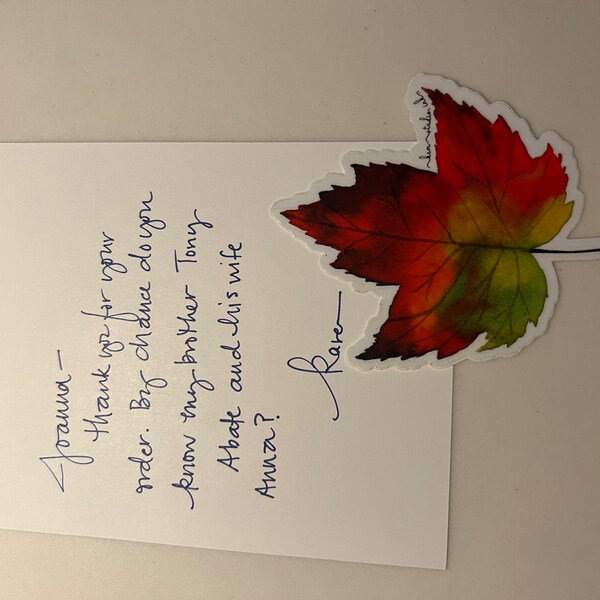 Joanna —
thank you for your
order. By chance do you
know my brother Tony
Abate and his wife
Anna?
Karen